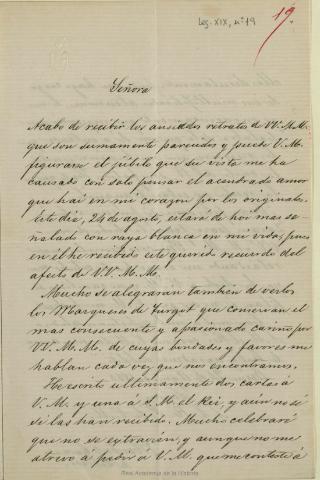 Leg. XIX, nº 19
19.
Señora
Acabo de recibir los ansiados retratos de VV. M.M.
que son sumamente parecidos y puede V.M.
figurarse el júbilo que su vista me ha
causado con solo pensar el acendrado amor
que hai en mi corazon por los originales.
Este dia, 24 de agosto, estará de hoi mas se-
ñalado con raya blanca en mi vida, pues
en él he recibido este querido recuerdo del
afecto de V.V. M.M.
Mucho se alegrarán tambien de verlos
los Marqueses de Turgot que conservan el
mas consecuente y apasionado cariño por
VV. M.M. de cuyas bondades y favores me
hablan cada vez que nos encontramos.
He escrito ultimamente dos cartas á
V.M. y una á S.M. el Rei, y aún no sé
si las han recibido. Mucho celebraré
que no se extravien, y aunque no me
atrevo á pedir á V.M. que me conteste á
Real Academia de la Historia